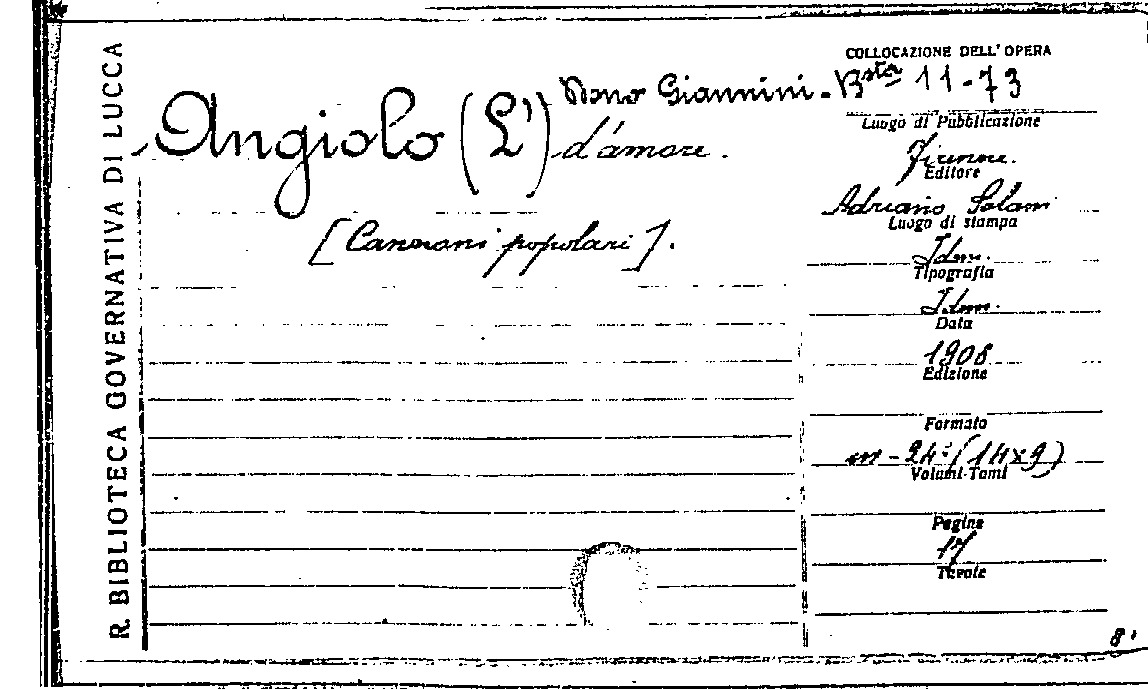 R. BIBLIOTECA GOVERNATIVA DI LUCCA
COLLOCAZIONE DELL'OPERA
Dono Giannini - Bsta 11-73
Angiolo (L') d'amore.
[Canzoni popolari].
Luogo di Pubblicazione
Firenze.
Editore
Adriano Salani
Luogo di stampa
Idm.
Tipografia
Idm.
Data
1908
Edizione
Formato
in-24° (14x9)
Volumi-Tomi
Pagine
17
Tavole
8.